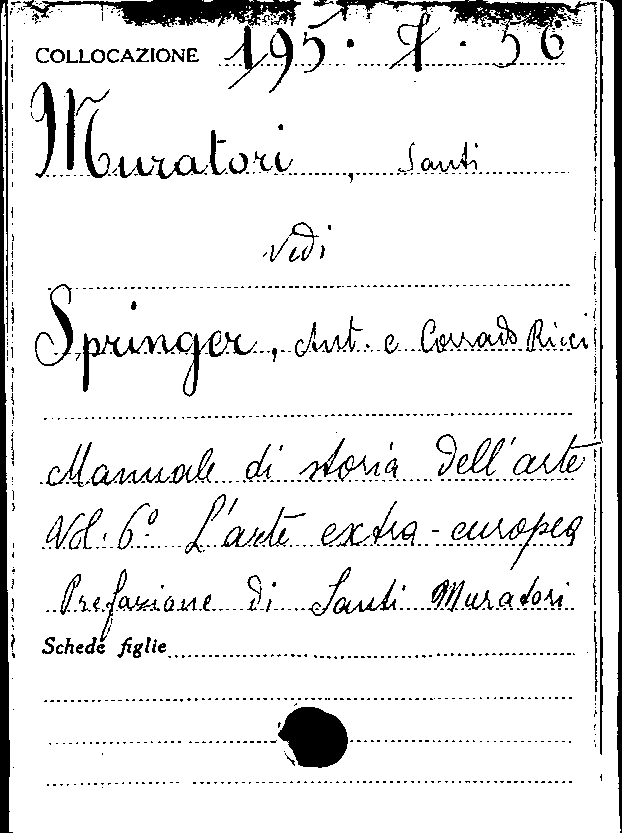 COLLOCAZIONE 195. I. 56
Muratori, Santi
Vedi
Springer, Ant. e Corrado Ricci
Manuale di storia dell'arte
Vol. 6º L'arte extra-europea
Prefazione di Santi Muratori
Schede figlie